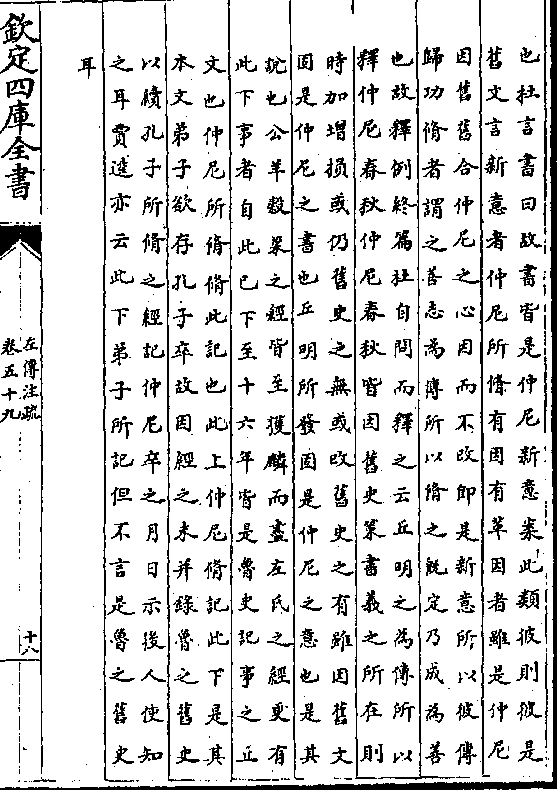 也杜言書曰故書皆是仲尼新意案此類彼則彼是
舊文言新意者仲尼所脩有因有革因者雖是仲尼
因舊舊合仲尼之心因而不改即是新意所以彼傳
歸功脩者謂之善志為傳所以脩之既定乃成為善
也故釋例終篇杜自問而釋之云丘明之為傳所以
釋仲尼春秋仲尼春秋皆因舊史策書義之所在則
時加增損或仍舊史之無或改舊史之有雖因舊文
固是仲尼之書也丘明所發固是仲尼之意也是其
說也公羊穀梁之經皆至獲麟而盡左氏之經更有
此下事者自此已下至十六年皆是魯史記事之正
文也仲尼所脩脩此記也此上仲尼脩記此下是其
本文弟子欲存孔子卒故因經之末并錄魯之舊史
以續孔子所脩之經記仲尼卒之月日示後人使知
之耳賈逵亦云此下弟子所記但不言是魯之舊史
耳
欽定四庫全書
左傳注疏
卷五十九
十八